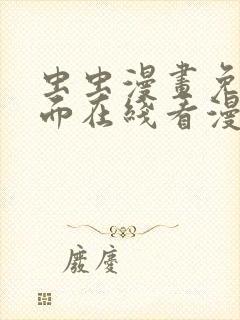 虫虫漫畫免
而在线看漫
廢慶